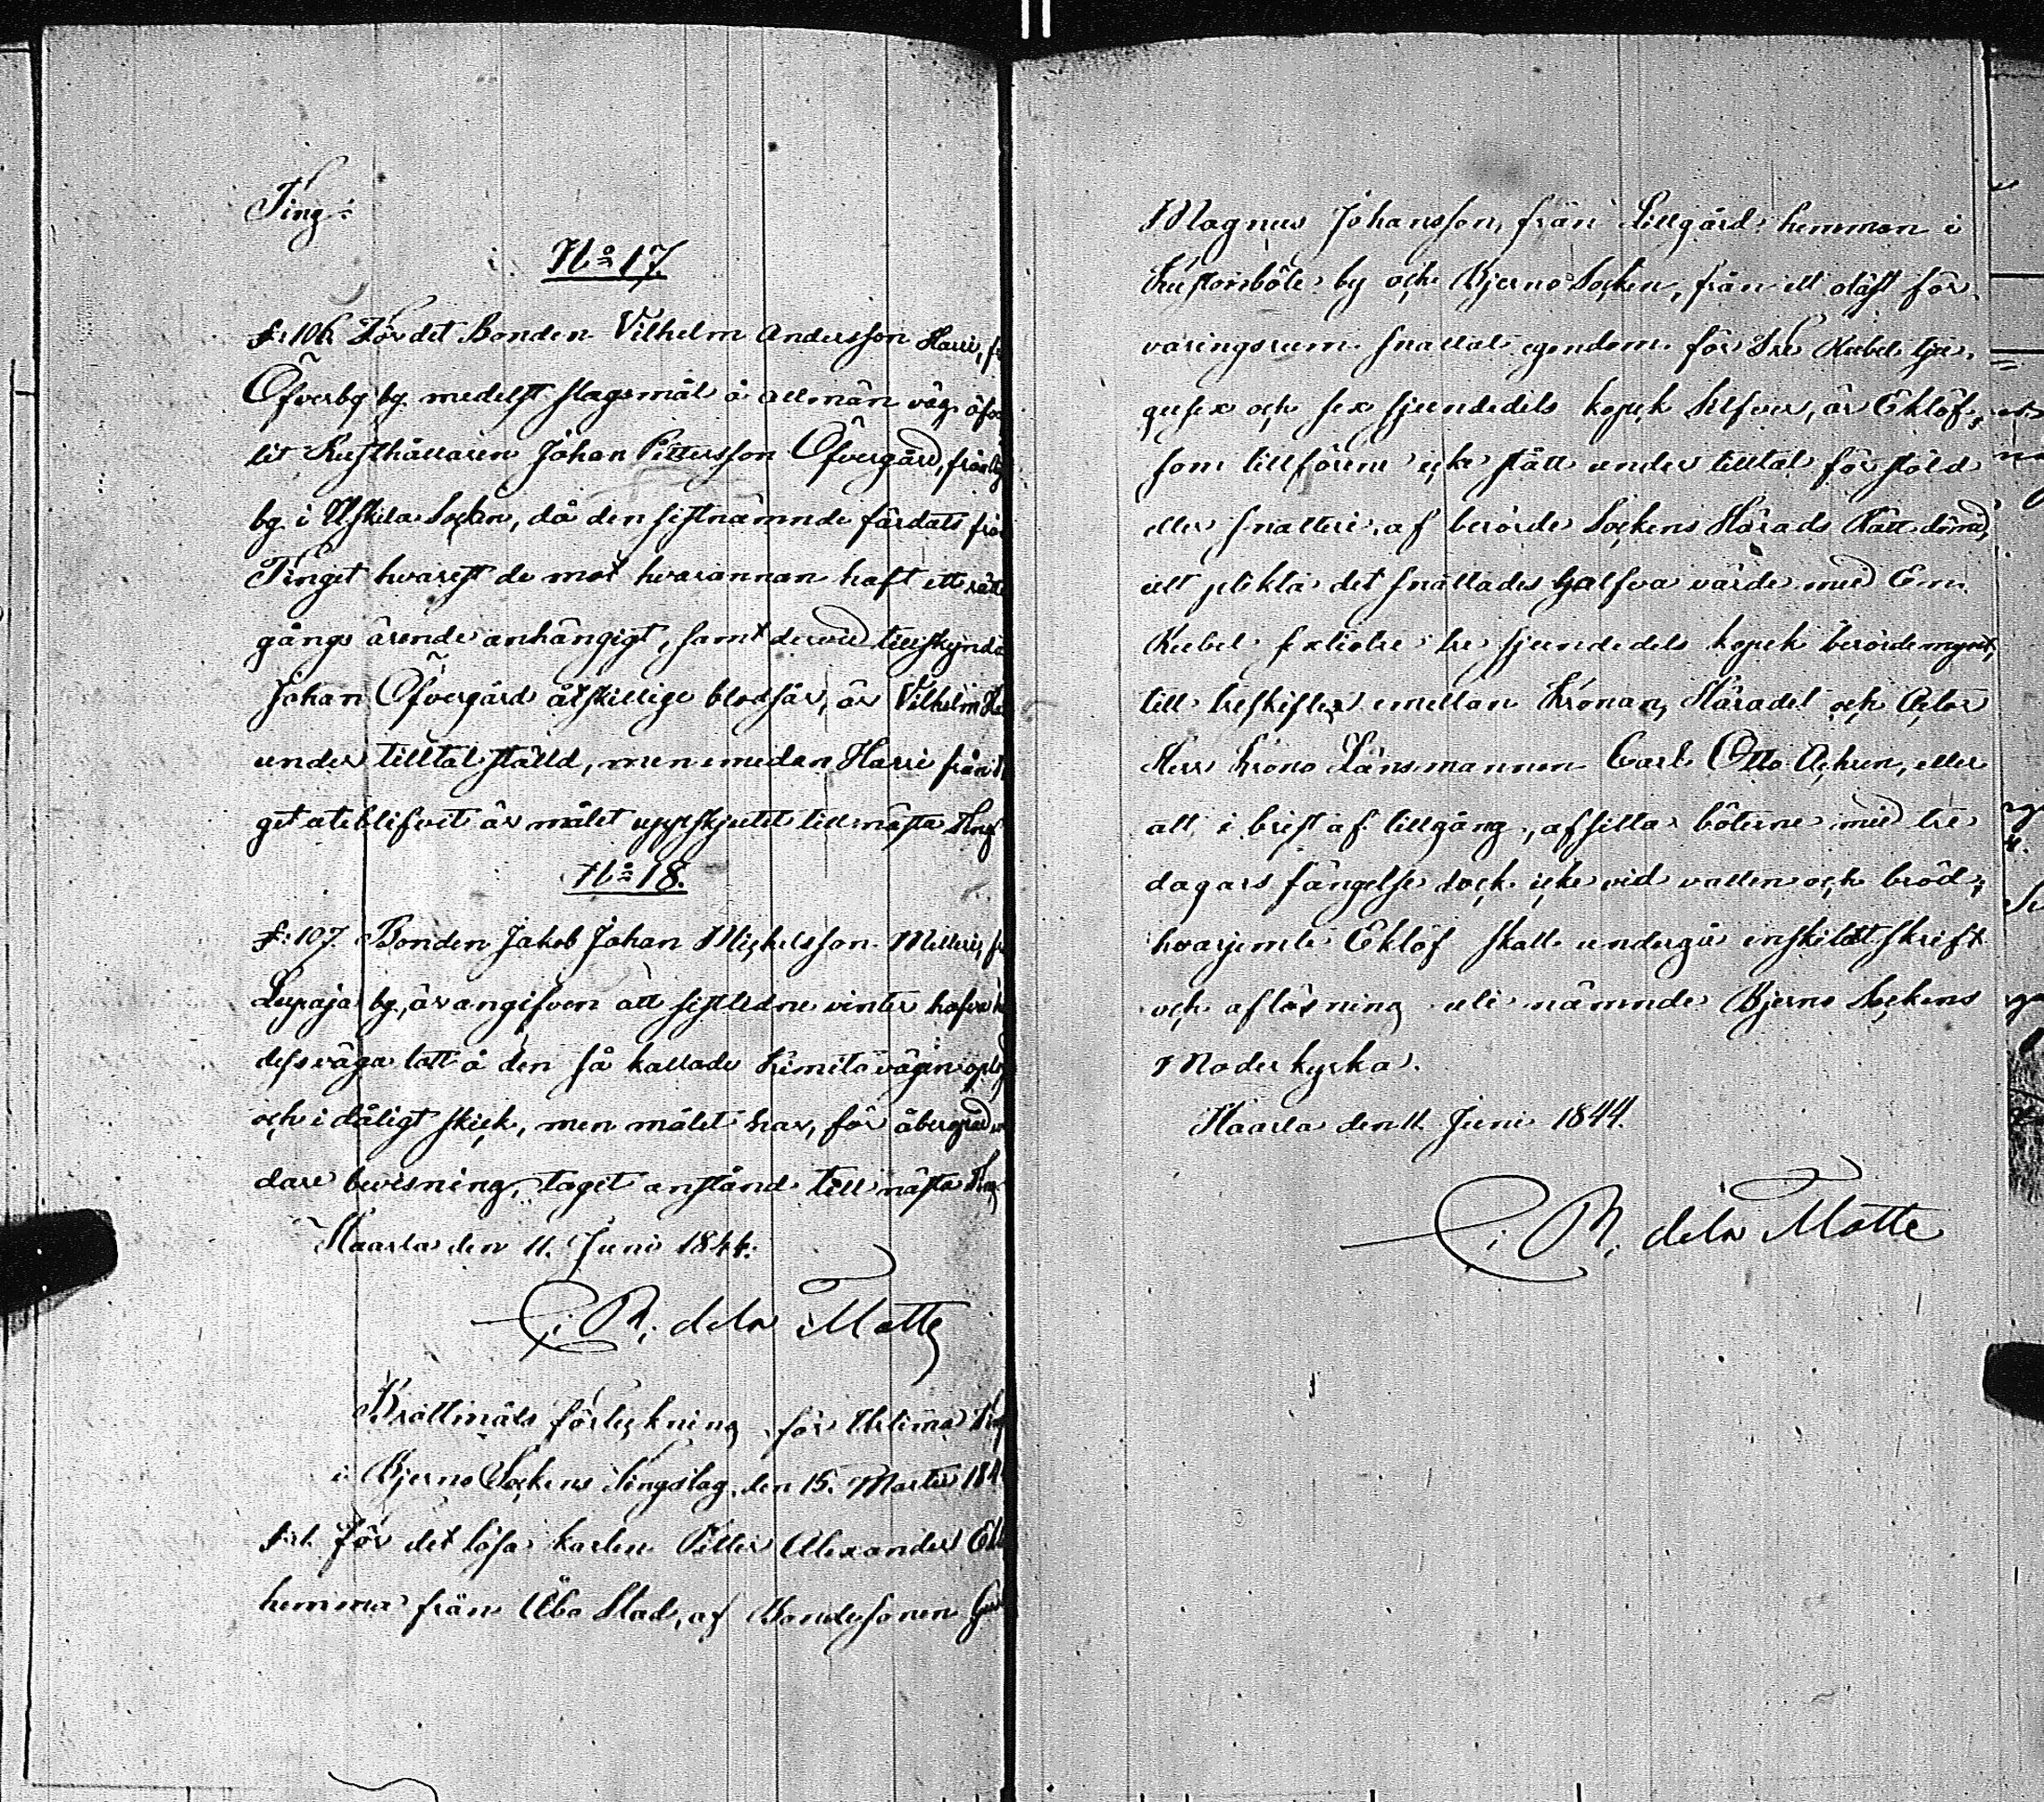 Ting.
No 17.
f: 106. För det Bonden Vilhelm Andersson Harri,
Öfverby by medelst slagsmål å allmän väg
lit Rusthållaren Johan Pettersson Öfvergård,
by i Uskela Socken, då den sistnämnde färdats från
Tinget hvarest de mot hvarannan haft ett rätte
gångs ärende anhängigt, samt dervid tillskynda
Johan Öfvergård åtskillige blodsår, är Vilhelm
under tilltal ställd, men emedan Harri från
get uteblifvit är målet uppskjutet till nästa Ting
No 18.
f: 107. Bonden Jakob Johan Mickelsson Melleri,
Lupaja by, är angifven att sistledne vinter hafva
dess väga lott å den så kallade Kimito vägen
och i dåligt skick, men målet har, för åberopad
dare bevisning, taget anstånd till nästa Ting
Haarla den 11. Juni 1844.
C. R. de la Motte
Brottmåls förteckning för Urtima Ting
i Bjerno Sockens Tingslag den 15. Martii 184
f: 1. För det löse karlen Petter Alexander
hemma från Åbo Stad, af Bondesonen
Magnus Johansson, från Lillgård hemman i
böle by och Bjerno Socken, från ett oläst för
varingsrum snattat egendom för Tre Rubel tju
gusex och sex sjundedels kopek Silfver, är Eklöf,
som tillförene icke stått under tilltal för stöld
eller snatteri, af berörde Sockens Härads Rätt dömd,
att plikta det snattades halfva värde med En
Rubel sextiotre tre sjundedels kopek berörde mynt,
till treskiftes emellan Kronan, Häradet och Actor
Herr Krono Länsmannen Carl Otto Achren, eller
att i brist af tillgång, afsitta böterne med tre
dagars fängelse dock icke vid vatten och bröd;
hvarjemte Eklöf skall undergå enskildt skrift
och aflösning uti nämnde Bjerno Sockens
Moderkyrka.
Haarla den 11. Juni 1844.
C. R. de la Motte